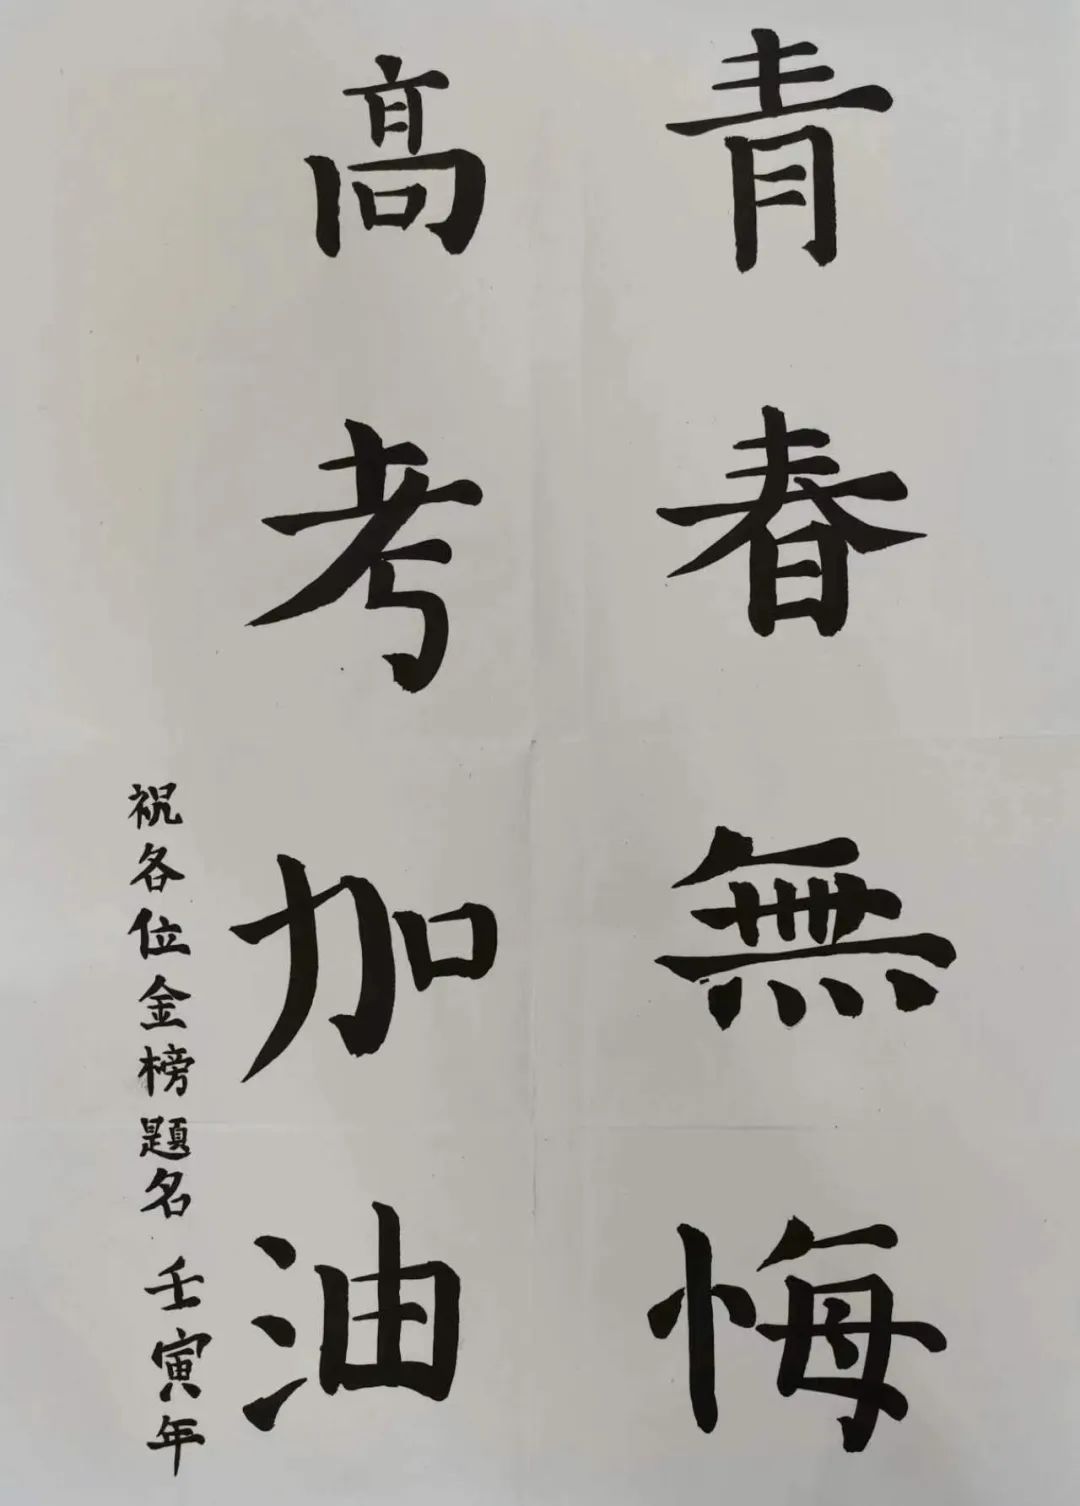 青春無悔
高考加油
祝各位金榜題名 壬寅年